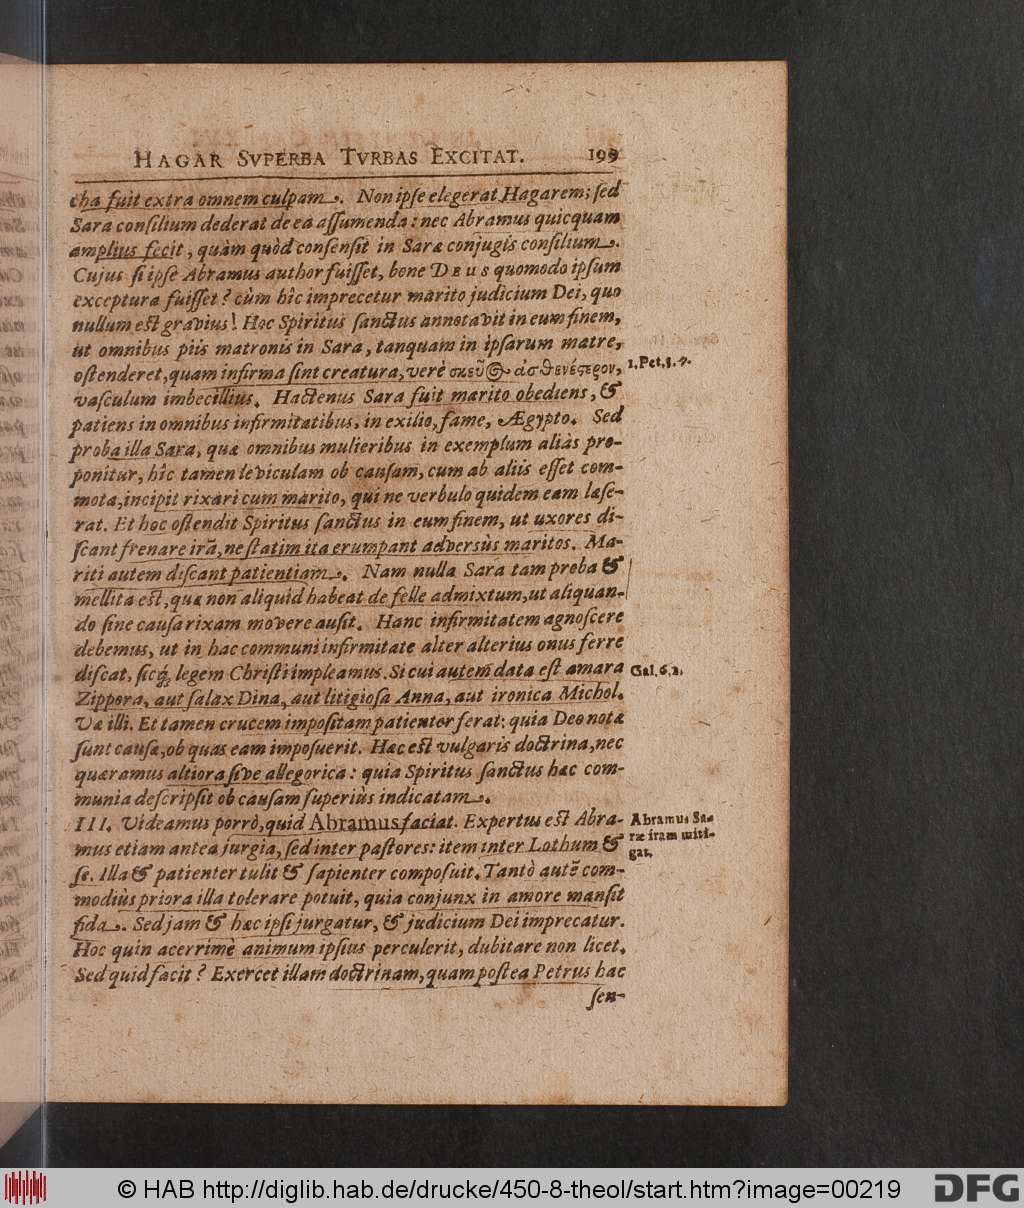 HAGAR SVPERBA TVRBAS EXCITAT. 199
cha fuit extra omnem culpam. Non ipse elegerat Hagarem; sed
Sara consilium dederat de ea assumenda: nec Abramus quicquam
amplius fecit, quàm quòd consensit in Saræ conjugis consilium.
Cujus si ipse Abramus author fuisset, bone DEUS quomodo ipsum
exceptura fuisset? cùm hîc imprecetur marito judicium Dei, quo
nullum est gravius! Hoc Spiritus sanctus annotavit in eum finem,
ut omnibus piis matronis in Sara, tanquam in ipsarum matre,
ostenderet, quam infirma sint creatura, verè σκεῦος ἀσθενέςερον,
1. Pet. 3. 7.
vasculum imbecillius. Hactenus Sara fuit marito obediens, &
patiens in omnibus infirmitatibus, in exilio, fame, Ægypto. Sed
proba illa Sara, quæ omnibus mulieribus in exemplum aliàs pro-
ponitur, hîc tamen leviculam ob causam, cum ab aliis esset com-
mota, incipit rixari cum marito, qui ne verbulo quidem eam læse-
rat. Et hoc ostendit Spiritus sanctus in eum finem, ut uxores di-
scant frenare irã, ne statim ita erumpant adversùs maritos. Ma-
riti autem discant patientiam. Nam nulla Sara tam proba &
mellita est, quæ non aliquid habeat de felle admixtum, ut aliquan-
do sine causa rixam movere ausit. Hanc infirmitatem agnoscere
debemus, ut in hac communi infirmitate alter alterius onus ferre
discat, sicq́; legem Christi impleamus. Si cui autem data est amara
Gal. 6, 2.
Zippora, aut salax Dina, aut litigiosa Anna, aut ironica Michol.
Væ illi. Et tamen crucem impositam patienter ferat: quia Deo notæ
sunt causæ, ob quas eam imposuerit. Hæc est vulgaris doctrina, nec
quæramus altiora sive allegorica: quia Spiritus sanctus hæc com-
munia descripsit ob causam superiùs indicatam.
III. Videamus porrò, quid Abramus faciat. Expertus est Abra-
Abramus Sa-
ræ iram miti-
gat.
mus etiam antea jurgia, sed inter pastores: item inter Lothum &
se. Illa & patienter tulit & sapienter composuit. Tantò autẽ com-
modiùs priora illa tolerare potuit, quia conjunx in amore mansit
fida. Sed jam & hæc ipsi jurgatur, & judicium Dei imprecatur.
Hoc quin acerrimè animum ipsius perculerit, dubitare non licet.
Sed quid facit? Exercet illam doctrinam, quam postea Petrus hac
sen-
© HAB http://diglib.hab.de/drucke/450-8-theol/start.htm?image=00219
DFG